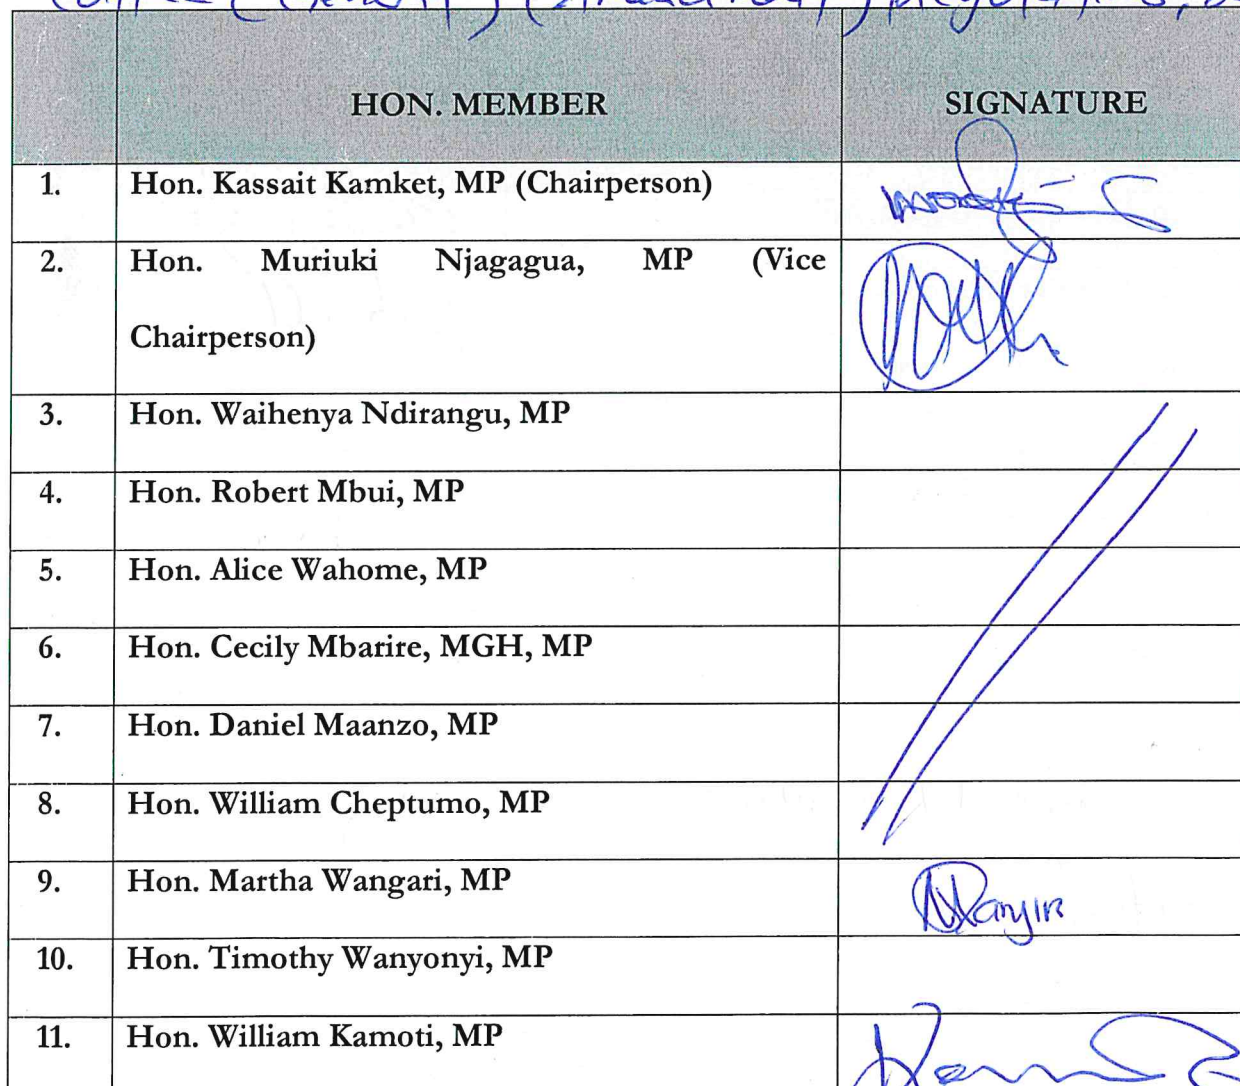 HON. MEMBER SIGNATURE
1. Hon. Kassait Kamket, MP (Chairperson)
2. Hon. Muriuki Njagagua, MP (Vice
Chairperson)
3. Hon. Waihenya Ndirangu, MP
4. Hon. Robert Mbui, MP
5. Hon. Alice Wahome, MP
6. Hon. Cecily Mbarire, MGH, MP
7. Hon. Daniel Maanzo, MP
8. Hon. William Cheptumo, MP
9. Hon. Martha Wangari, MP
10. Hon. Timothy Wanyonyi, MP
11. Hon. William Kamoti, MP